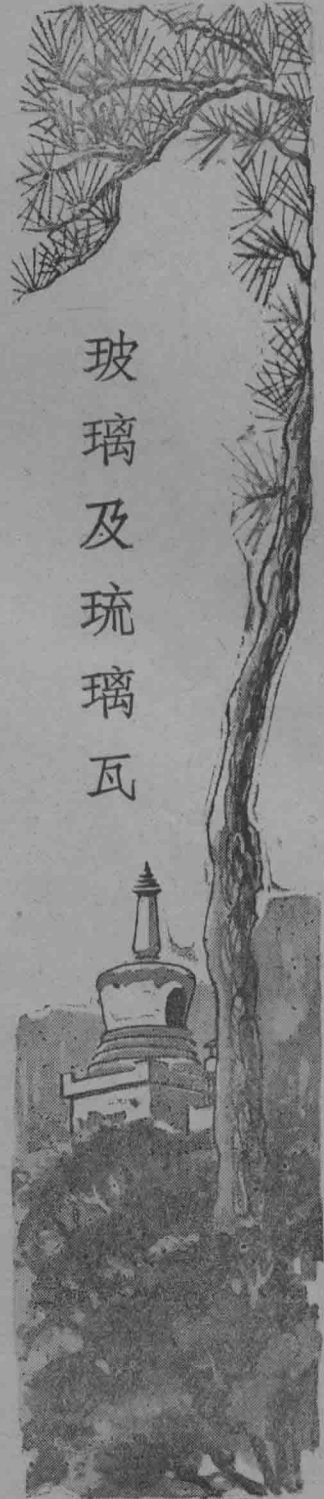 玻璃及琉璃瓦